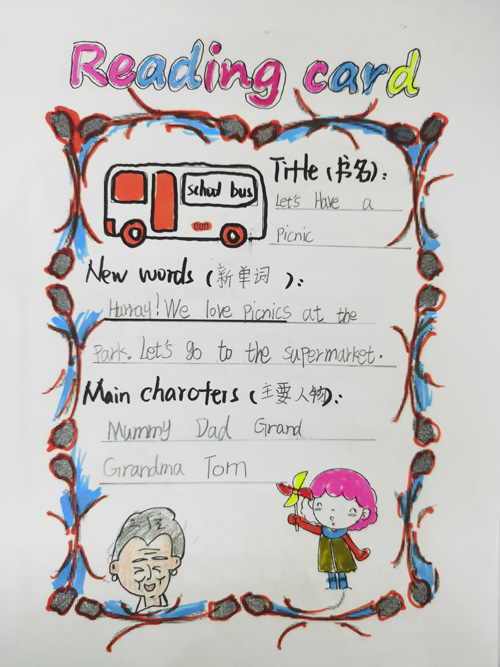 Reading card
school bus
Title (书名):
Let's Have a
Picnic
New words (新单词 ):
Hurray! We love picnics at the
Park. Let's go to the supermarket.
Main charoters (主要人物):
Mummy Dad Grand
Grandma Tom